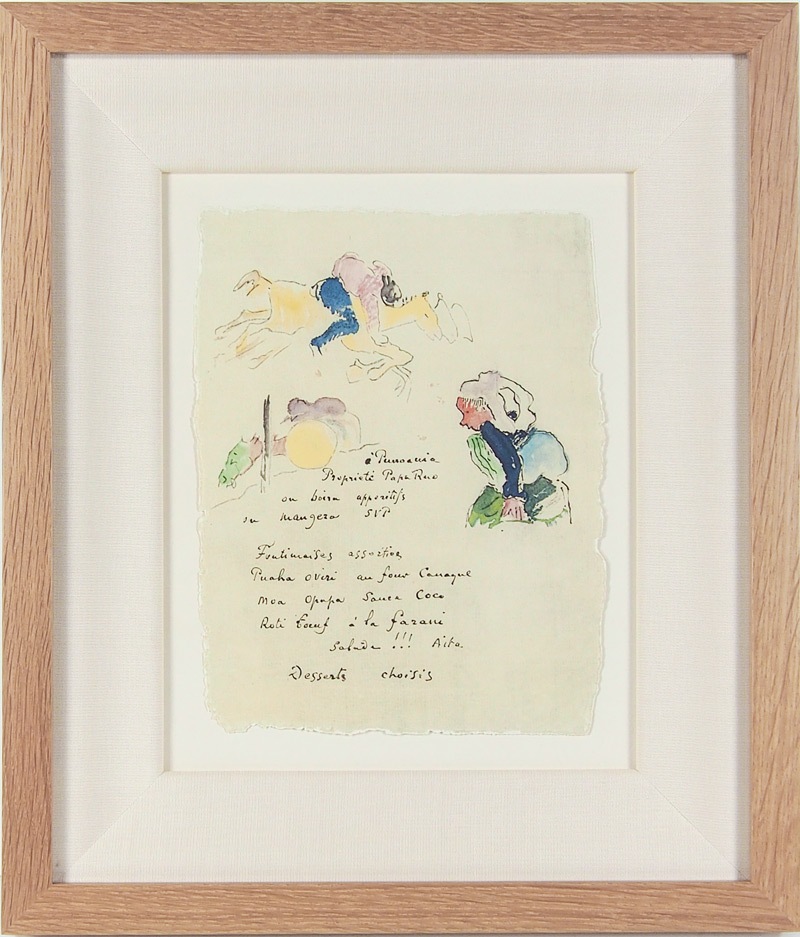 à Punoauia
Proprieté Papa Ruo
on boira apperitifs
on mangera SVP
Fontimaises assorties
Puaha oviri au four Canaque
Moa Opapa Sauce Coco
Roti bœuf à la farani
Salade !!! Aita.
Desserts choisis